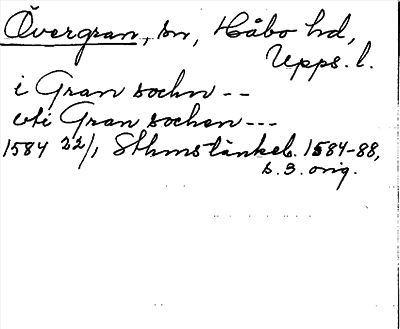 Övergran, sn, Håbo hd,
Upps. l.
i Gran sochn --
vti Gran sochen ---
1584 22/1 Sthms tänkeb. 1584-88,
s. 3. orig.